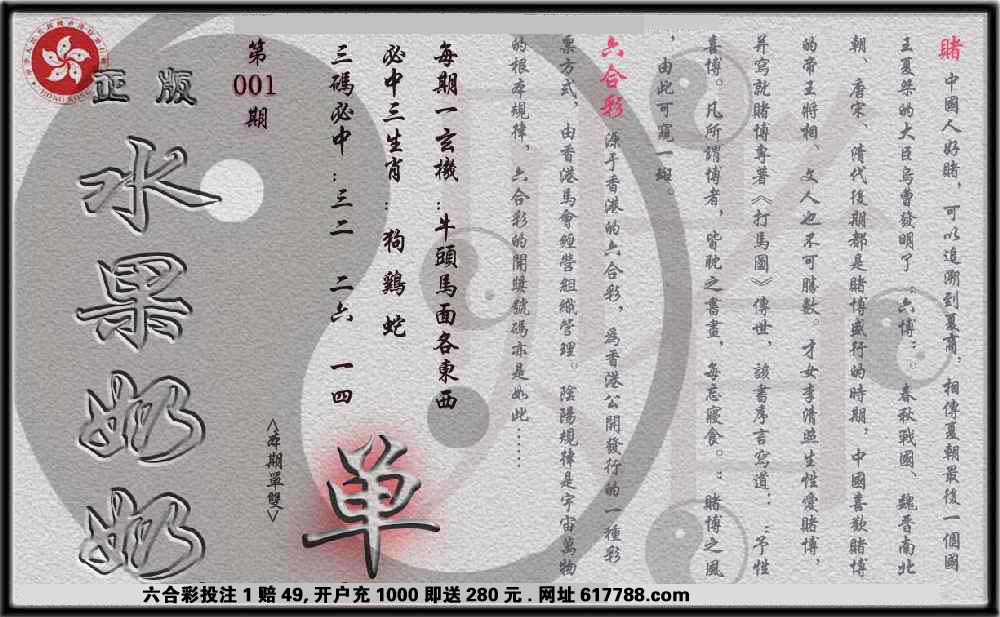 賭 中國人好賭，可以追溯到夏商；相傳夏朝最後一個國
王夏桀的大臣烏曹發明了“六博”；春秋戰國、魏晉南北
朝、唐宋、清代後期都是賭博盛行的時期，中國喜歡賭博
的帝王將相、文人也不可勝數。才女李清照生性愛賭博，
并寫就賭博專著《打馬圖》傳世，該書序言寫道：“予性
喜博。凡所謂博者，皆耽之晝，每忘寢食。”賭博之風
，由此可窺一斑。
六合彩 源于香港的六合彩，為香港公開發行的一種彩
票方式，由香港馬會經營組織管理。陰陽規律是宇宙萬物
的根本規律，六合彩的開獎號碼亦是如此……
每期一玄機：牛頭馬面各東西
必中三生肖：狗 鷄 蛇
三碼必中：三二 二六 一四
第
001
期
<本期單雙>
单
正版
水果奶奶
六合彩投注1赔49,开户充1000即送280元.网址617788.com